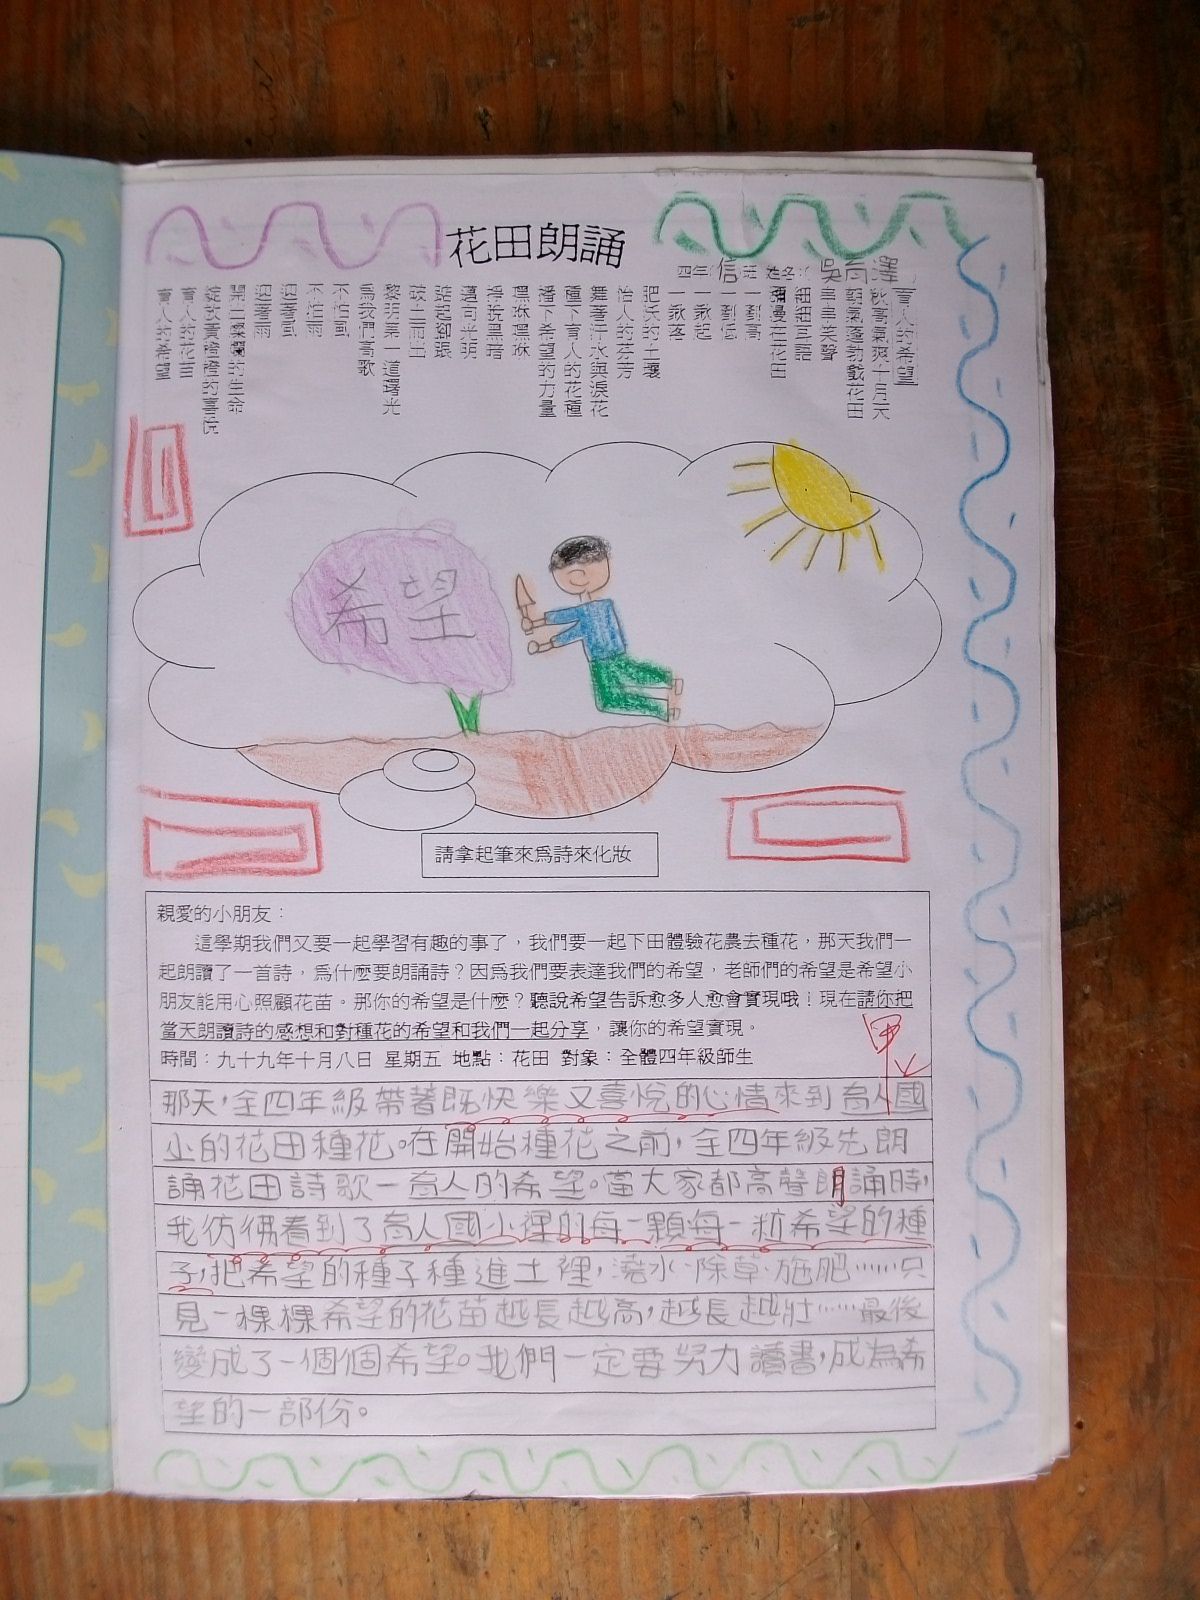 花田朗誦
四年 信 班 姓名： 吳育澤
育人的希望
秋高氣爽十月天
朝氣蓬勃戲花田
串串笑聲
細細耳語
彌漫在花田
一到高
一到低
一鍬起
一鍬落
肥沃的土壤
怡人的芬芳
舞著汗水與淚花
種下育人的花種
播下希望的力量
嘿咻嘿咻
掙脫黑暗
邁向光明
踮起腳跟
破土而出
黎明第一道曙光
為我們高歌
不怕風
不怕雨
迎著風
迎著雨
開出燦爛的生命
綻放黃橙橙的喜悅
育人的花苗
育人的希望
希望
請拿起筆來為詩來化妝
親愛的小朋友：
這學期我們又要一起學習有趣的事了，我們要一起下田體驗花農去種花，那天我們一
起朗讀了一首詩，為什麼要朗誦詩？因為我們要表達我們的希望，老師們的希望是希望小
朋友能用心照顧花苗。那你的希望是什麼？聽說希望告訴愈多人愈會實現哦！現在請你把
當天朗讀詩的感想和對種花的希望和我們一起分享，讓你的希望實現。
時間：九十九年十月八日 星期五 地點：花田 對象：全體四年級師生
甲
那天，全四年級帶著既快樂又喜悅的心情來到育人國
小的花田種花。在開始種花之前，全四年級先朗
誦花田詩歌一育人的希望。當大家都高聲朗誦時，
我彷彿看到了育人國小裡的每一顆每一粒希望的種
子，把希望的種子種進土裡，澆水、除草、施肥……只
見一棵棵希望的花苗越長越高，越長越壯……最後
變成了一個個希望。我們一定要努力讀書，成為希
望的一部份。